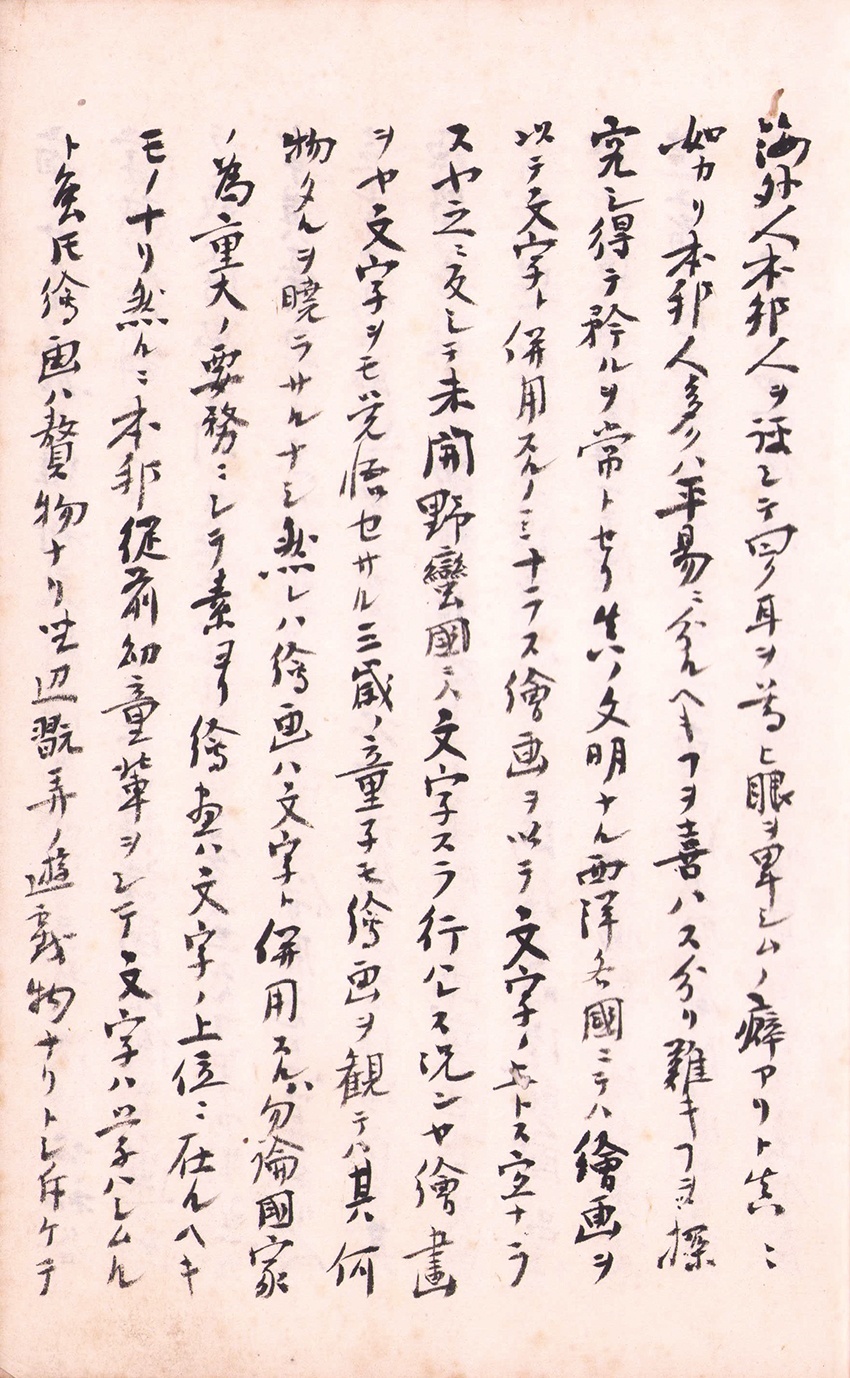 海外人本邦人ヲ評シテ曰ク耳ヲ尊ヒ眼ヲ卑シムノ癖アリト真ニ
如カリ本邦人多クハ平易ニ分ルヘキヿヲ喜ハス分リ難キヿヲ探
究シ得テ矜ルヲ常トセリ真ノ文明ナル西洋各國ニテハ繪画ヲ
以テ文字ト併用スルノミナラス繪画ヲ以テ文字ノ上トス宜ナラ
スヤ之ニ反シテ未開野蠻國ニハ文字スラ行ハレス况ンヤ繪畫
ヲヤ文字ヲモ覚悟セサル三歳ノ童子モ繪画ヲ観テハ其ハ何
物タルヲ曉ラサルナシ然レハ繪画ハ文字ト併用スルハ勿論國家
ノ為重大ノ要務ニシテ素ヨリ繪畫ハ文字ノ上位ニ在ルヘキ
モノナリ然ルニ本邦従前幼童輩ヲシテ文字ハ学ハシムル
ト雖𪜈繪画ハ贅物ナリ坐辺翫弄ノ遊戯物ナリトシ斥ケテ